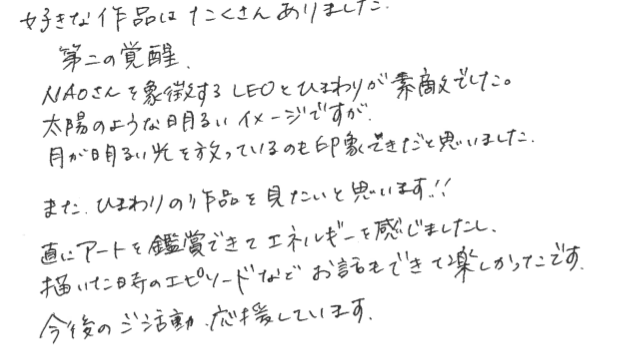 好きな作品はたくさんありました.
第二の覚醒.
NAOさんを象徴するLEOとひまわりが素敵でした。
太陽のような明るいイメージですが.
月が明るい光を放っているのも印象できだと思いました.
また.ひまわりの作品を見たいと思います!!
直にアートを鑑賞できてエネルギーを感じましたし.
描いた時のエピソードなどお話もできて楽しかったです.
今後のご活動.応援しています.